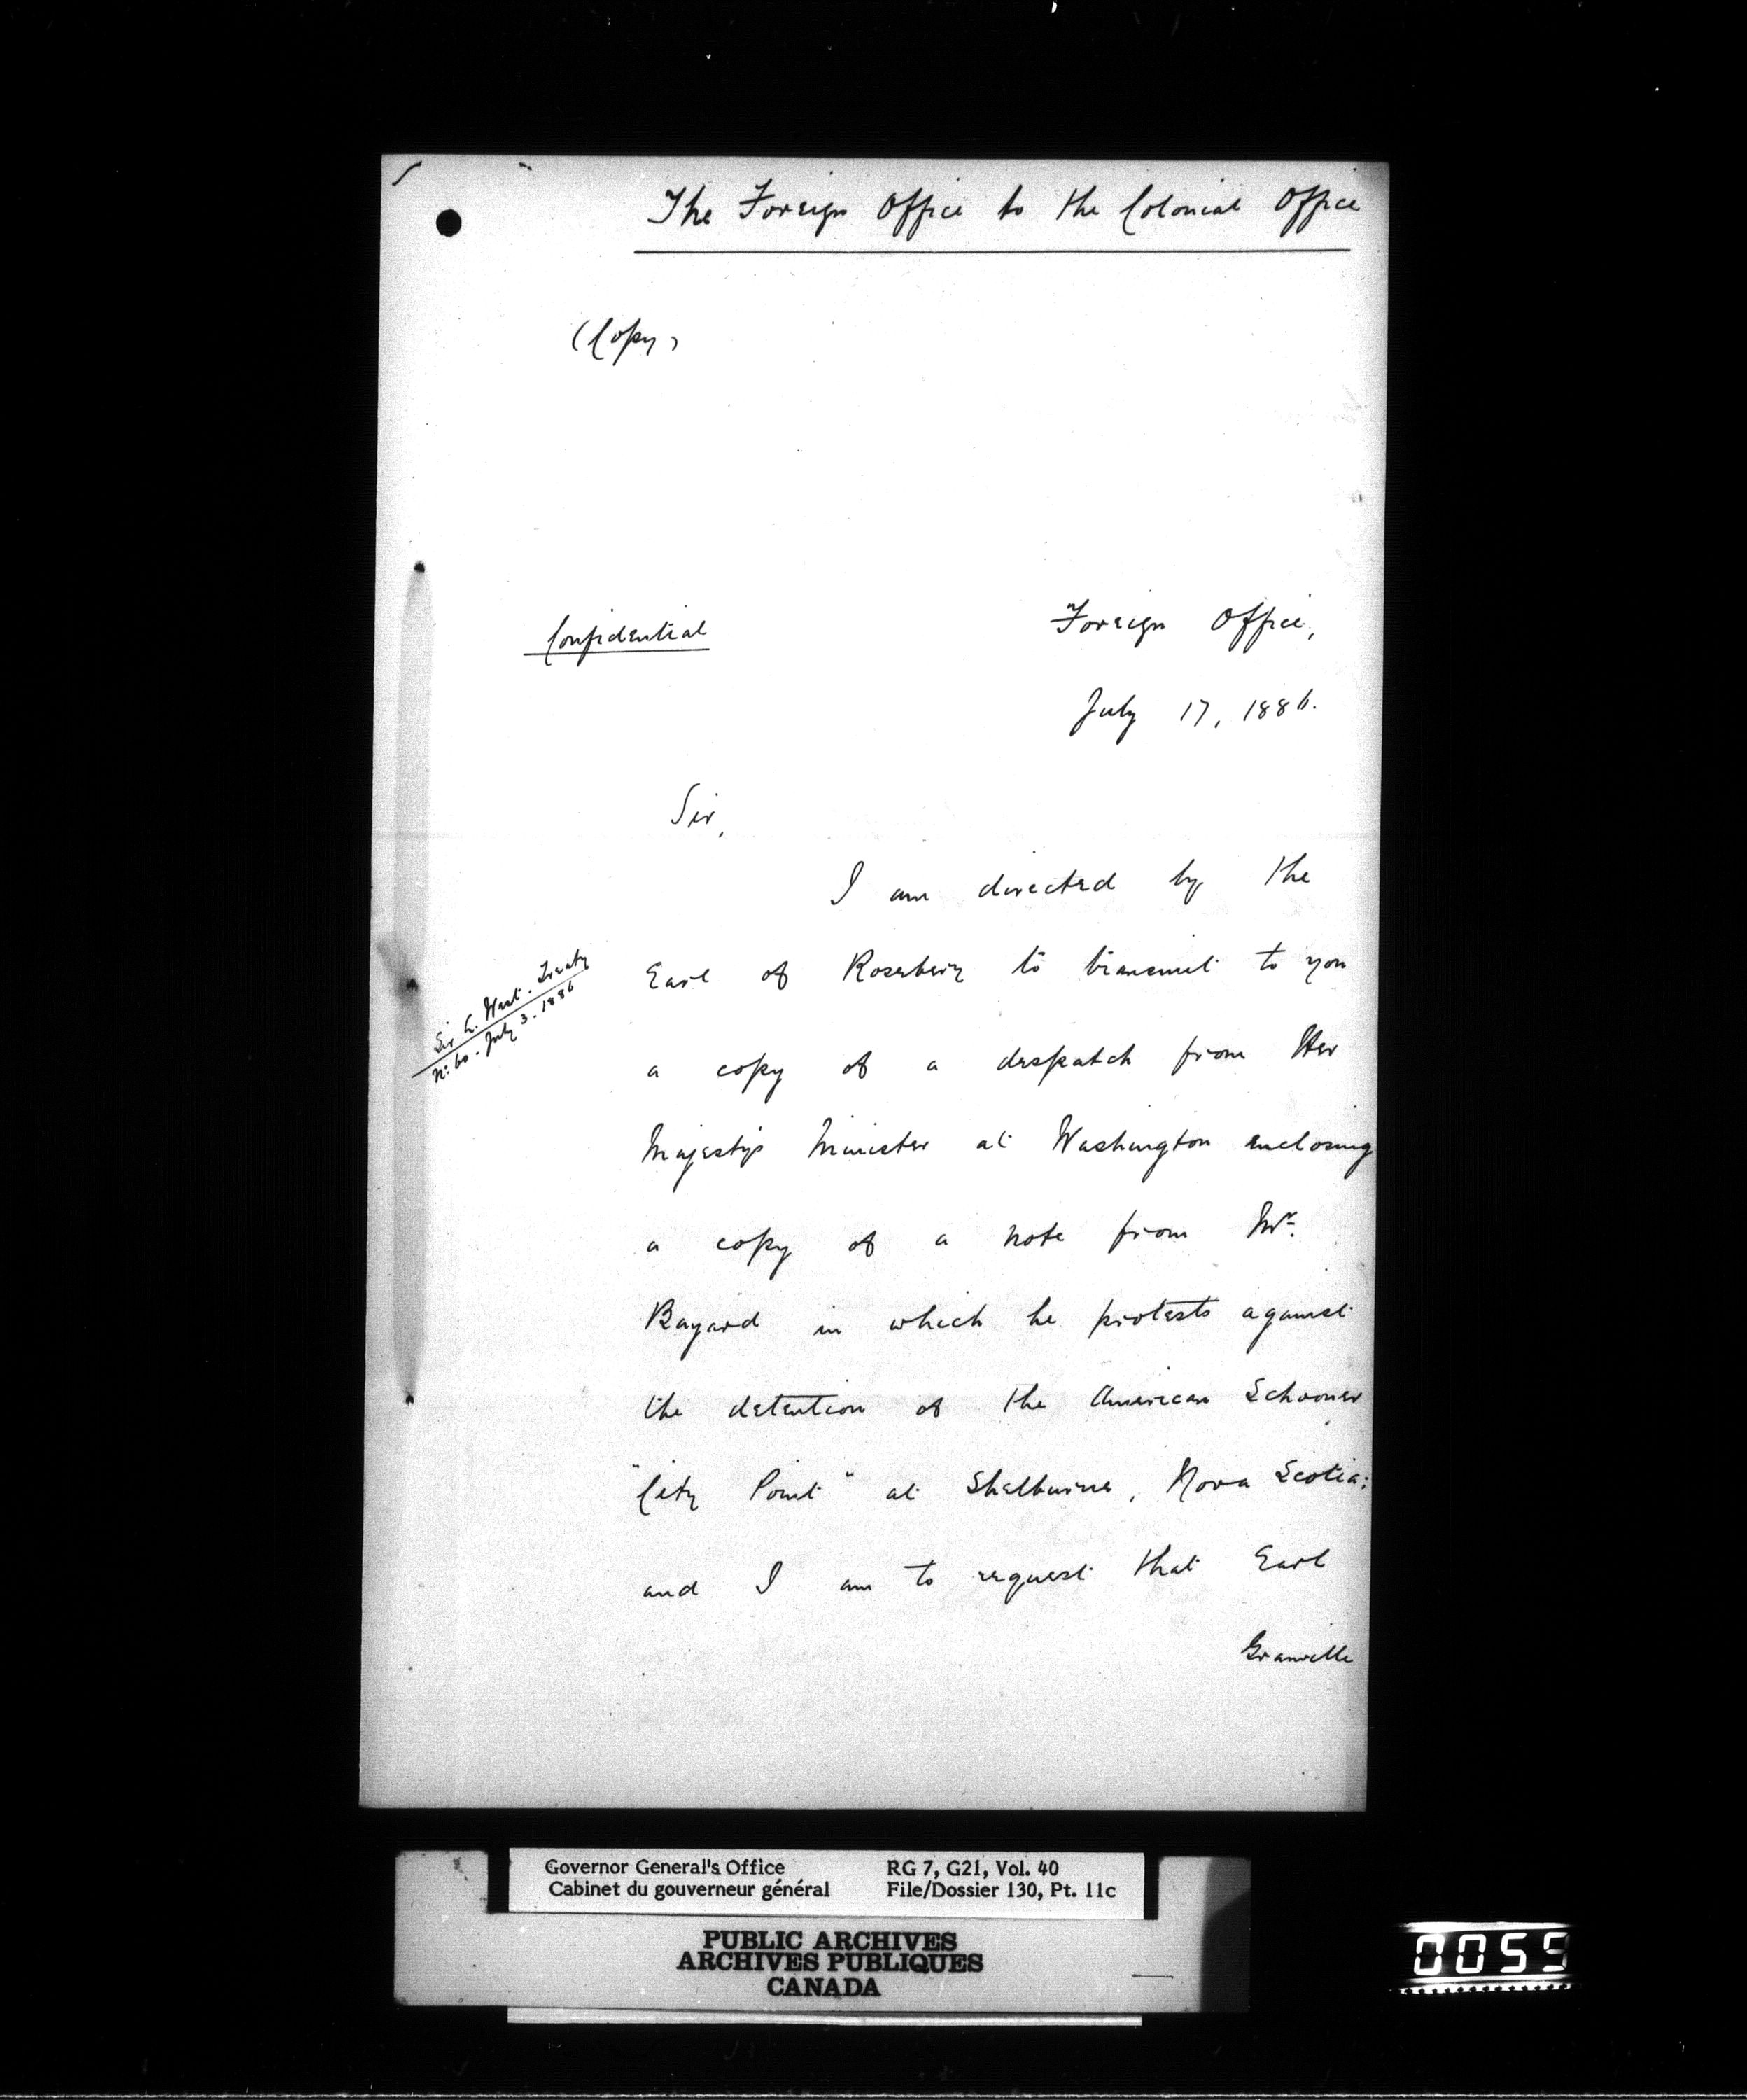 The Foreign Office to the Colonial Office
(Copy)
Confidential
Foreign Office,
July 17, 1886.
Sir,
I am directed by the
Sir L. West. Treaty
No: 60. July 3. 1886
Earl of Rosebery to transmit to you
a copy of a despatch from Her
Majesty's Minister at Washington enclosing
a copy of a note from Mr.
Bayard in which he protests against
the detention of the American Schooner
"City Point" at Shelburne, Nova Scotia:
and I am to request that Earl
Granville
Governor General's Office
Cabinet du gouverneur général
RG 7, G21, Vol. 40
File/Dossier 130, Pt. 11c
PUBLIC ARCHIVES
ARCHIVES PUBLIQUES
CANADA
0055